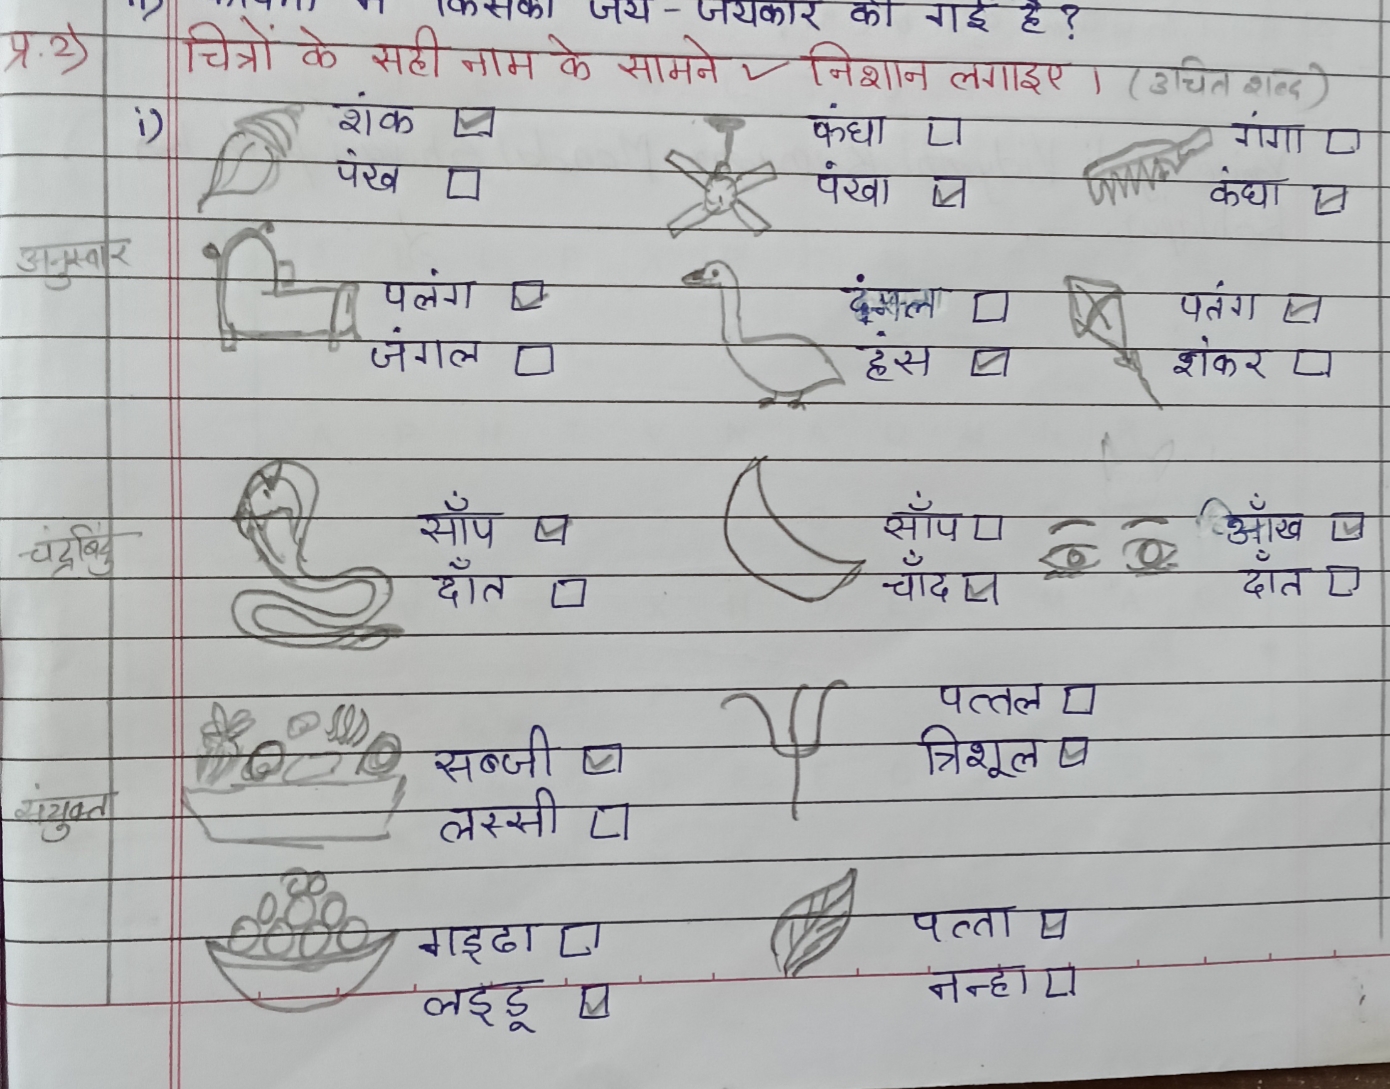 किसकी जय-जयकार की गई है?
प्र.2) चित्रों के सही नाम के सामने ✓ निशान लगाइए। (उचित शब्द)
i) शंक ☑ कंघा ☐ गंगा ☐
पंख ☐ पंखा ☑ कंघा ☑
अनुस्वार
पलंग ☑ ☐ पतंग ☑
जंगल ☐ हंस ☑ शंकर ☐
चंद्रबिंदु
साँप ☑ साँप ☐ आँख ☑
दाँत ☐ चाँद ☑ दाँत ☐
पत्तल ☐
सब्जी ☑ त्रिशूल ☑
संयुक्त
लस्सी ☐
गड्ढा ☐ पत्ता ☑
लड्डू ☑ नन्हा ☐